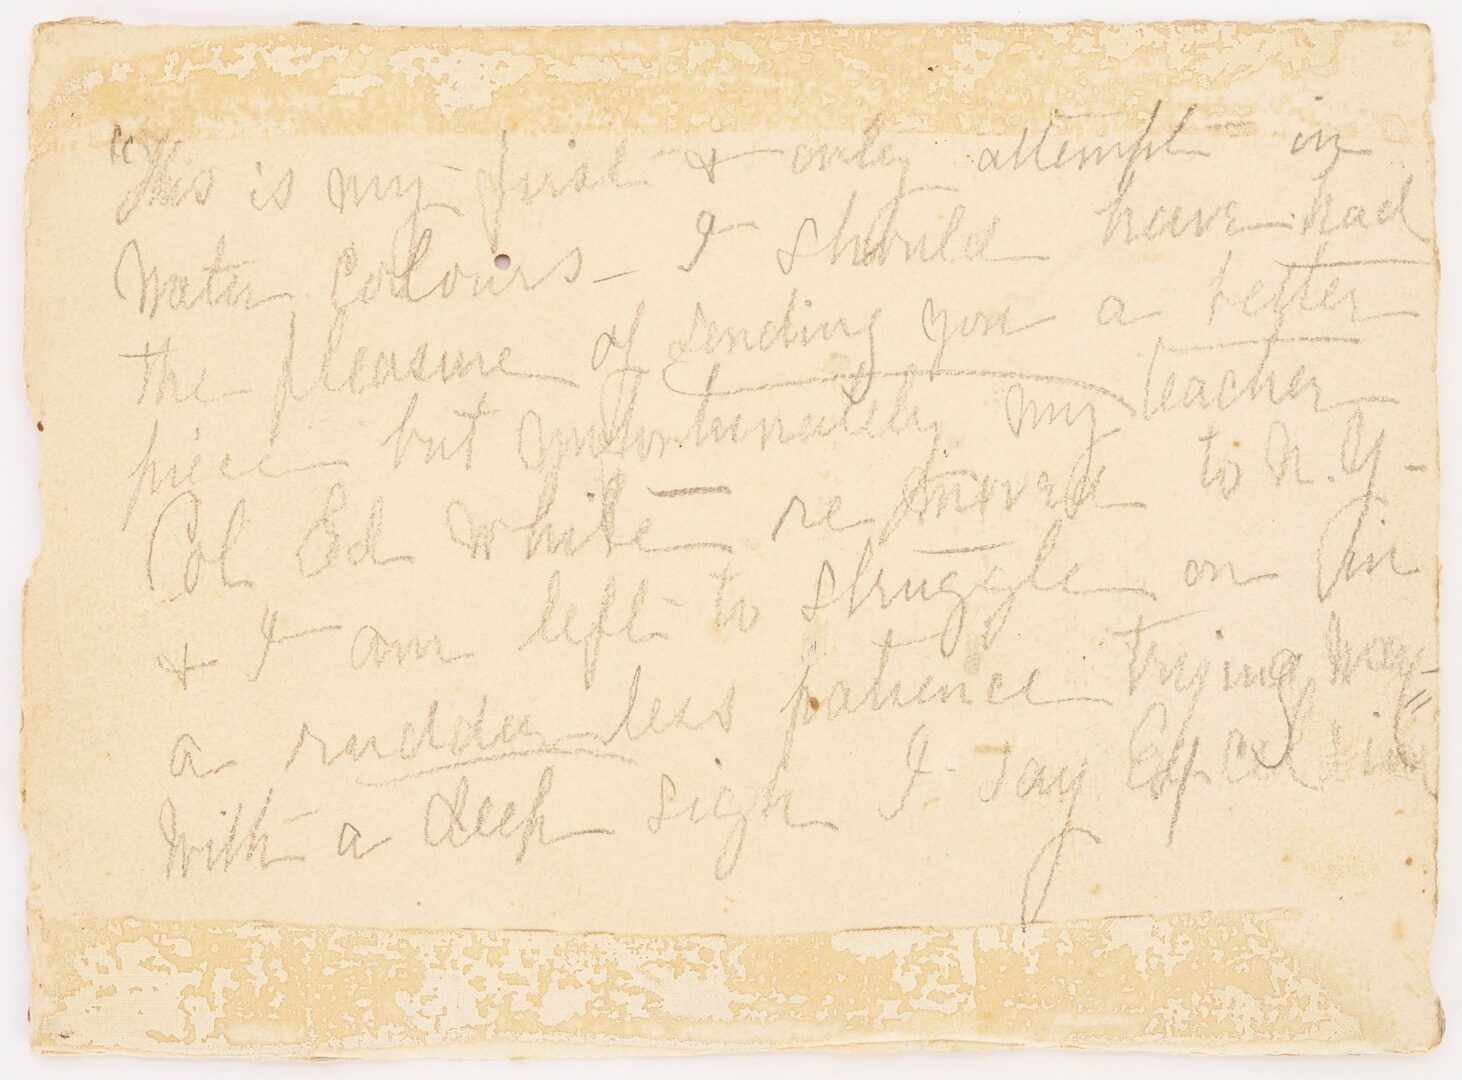 "This is my first & only attempt in
Water Colours – I should have had
the pleasure of sending you a better
piece but unfortunately my teacher
Col Ed White removed to N.Y.
& I am left to struggle on in
a rudder less patience trying way –"
With a deep sigh I say Excelsior